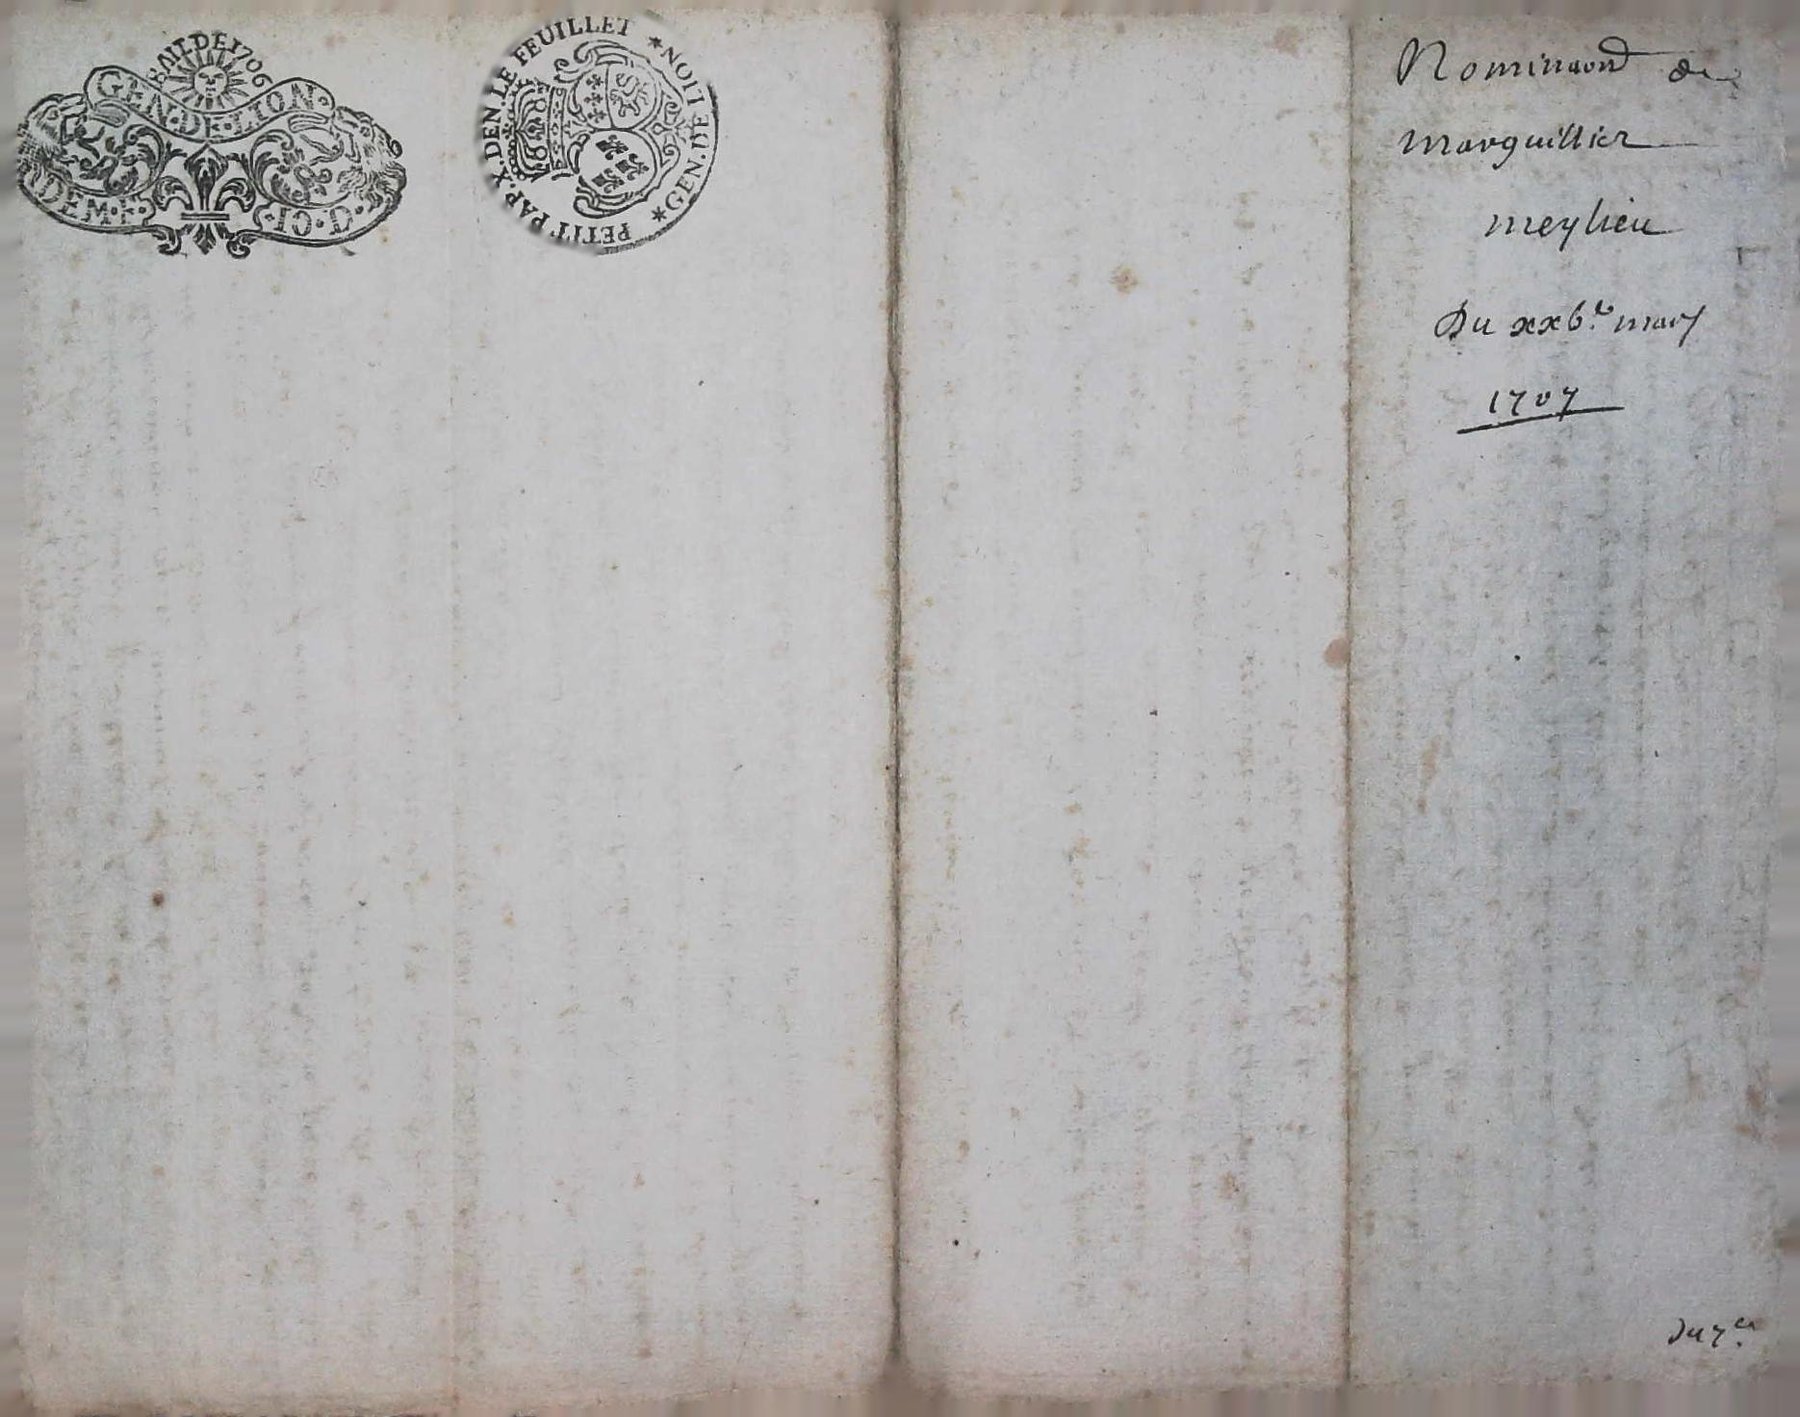 BAIL DE 1706
GEN·DE·LION·
PETIT PAP. X. DEN. LE FEUILLET * GEN. DE LION *
Nominaon de
marguillier
meylieu
Du xxb.e mars
1707